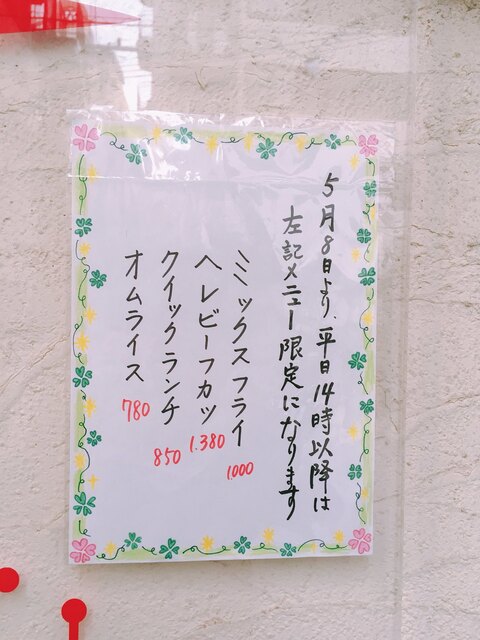 5月8日より、平日14時以降は
左記メニュー限定になります
ミックスフライ 1,000
ヘレビーフカツ 1,380
クイックランチ 850
オムライス 780